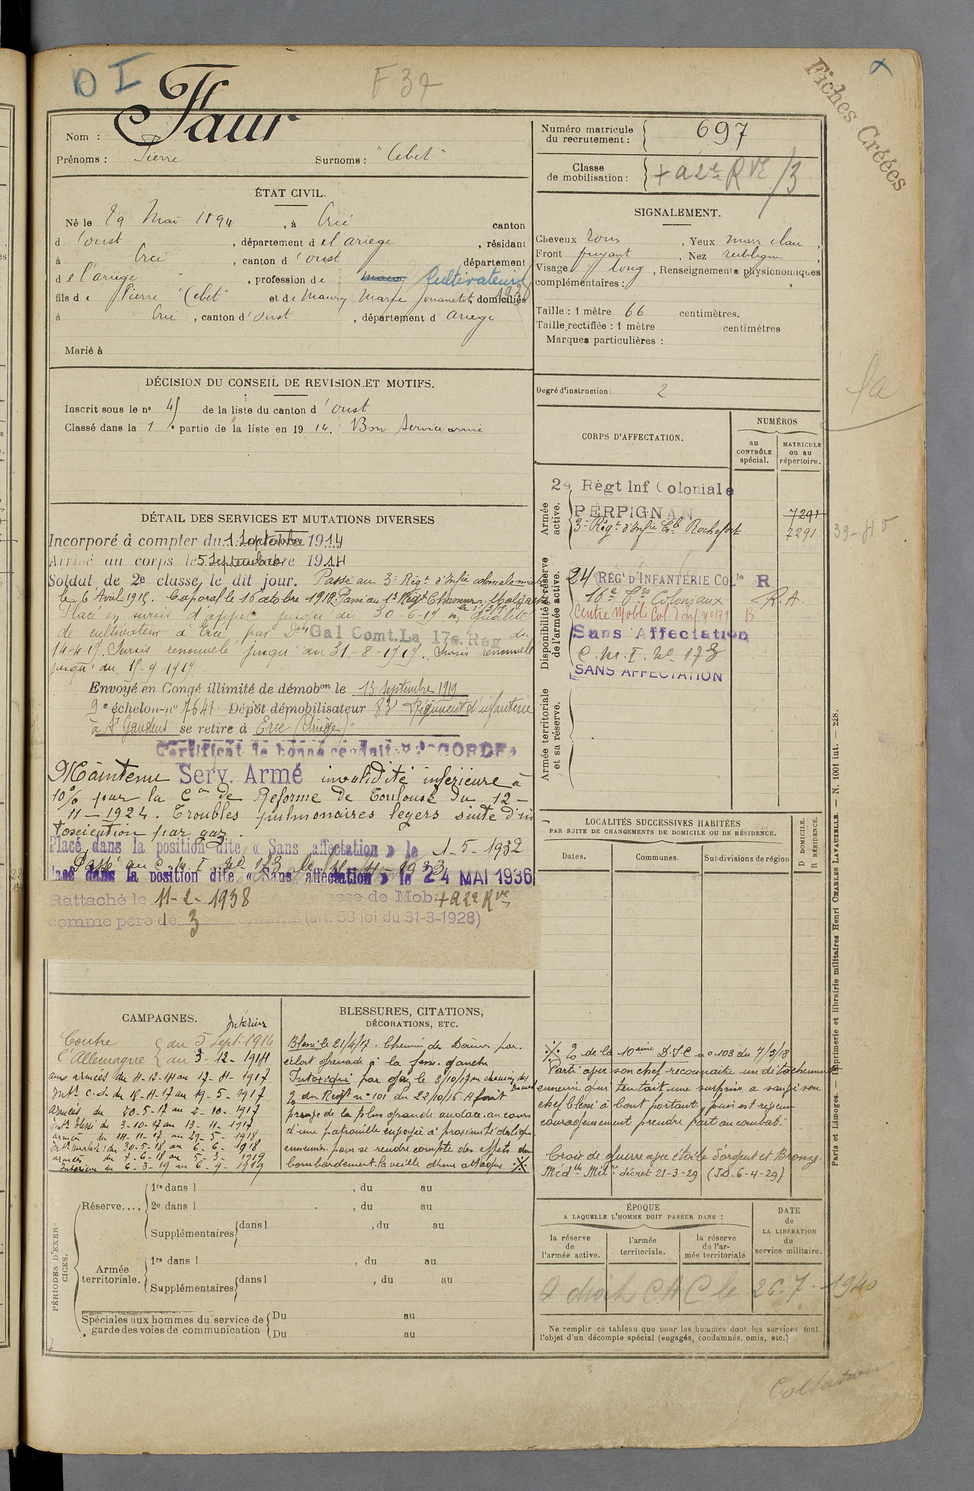 D I
F 37
Fiches Créées
Nom : Faur
Prénoms : Pierre Surnoms : "Cebet"
Numéro matricule du recrutement : 697
Classe de mobilisation : + a 2e Rve /3
ÉTAT CIVIL.
Né le 29 Mai 1894, à Ercé canton
d'Oust, département de l'Ariège, résidant
à Ercé, canton d'Oust département
de l'Ariège, profession de Cultivateur
fils de Pierre "Cebet" et de Maury Marie Jouanetit domiciliés
à Ercé, canton d'Oust, département d'Ariège
Marié à
SIGNALEMENT.
Cheveux roux, Yeux mars clair,
Front fuyant, Nez rectiligne
Visage long, Renseignements physionomiques
complémentaires :
Taille : 1 mètre 66 centimètres.
Taille rectifiée : 1 mètre centimètres
Marques particulières :
Degré d'instruction : 2
DÉCISION DU CONSEIL DE REVISION ET MOTIFS.
Inscrit sous le n° 45 de la liste du canton d'Oust
Classé dans la 1e partie de la liste en 1914. Bon Service armé
CORPS D'AFFECTATION.
NUMÉROS
au CONTRÔLE spécial.
MATRICULE ou au répertoire.
Armée active.
24 Régt Inf Coloniale
PERPIGNAN 7291
3e Régt d'Infie Cle Rochefort 7291
Disponibilité et réserve de l'armée active.
24 RÉGt D'INFANTERIE COLle R
16e Coloniaux R.A.
Centre Mob. Col. Inf. n° 179 B
Sans Affectation
C. M. I. N° 173
SANS AFFECTATION
Armée territoriale et sa réserve.
DÉTAIL DES SERVICES ET MUTATIONS DIVERSES
Incorporé à compter du 1 Septembre 1914
Arrivé au corps le 5 Septembre 1914
Soldat de 2e classe, le dit jour. Passé au 3e Régt d'Infie coloniale
le 6 Avril 1918. Caporal le 15 octobre 1918. Passé au 1er Régt Chasseurs Malgaches
Placé en sursis d'appel jusqu'au 30-6-19 en qualité
de cultivateur à Ercé, par Don Gal Comt. La 17e Rég du
14-4-19. Sursis renouvelé jusqu'au 31-8-1919. Sursis renouvelé
jusqu'au 15-9-1919
Envoyé en Congé illimité de démobon le 13 Septembre 1919
9e échelon n° 7641 Dépôt démobilisateur 83e Régiment d'infanterie
à St Gaudens se retire à Ercé (Ariège)
Certificat de bonne conduite ACCORDÉ
Maintenu Serv. Armé invalidité inférieure à
10% par la Con de Réforme de Toulouse du 12-
11-1924. Troubles pulmonaires légers suite d'in
toxication par gaz.
Placé dans la position dite « Sans affectation » le 1-5-1932
Passé au C. M. I. N° 173 le
Placé dans la position dite « Sans affectation » le 24 MAI 1936
Rattaché le 11-2-1938 classe de Mob: + a 2e Rve
comme père de 3 (art. 58 loi du 31-3-1928)
LOCALITÉS SUCCESSIVES HABITÉES
PAR SUITE DE CHANGEMENTS DE DOMICILE OU DE RÉSIDENCE.
Dates. Communes. Subdivisions de région
D DOMICILE.
R RÉSIDENCE.
CAMPAGNES.
Intérieur
Contre du 5 Sept 1914
l'Allemagne au 3-12-1914
aux armées du 4-12-14 au 17-11-1917
Int. c.d. du 18-11-17 au 19-5-1917
Armées du 20-5-17 au 2-10-1917
Int. blessé du 3-10-17 au 13-11-1917
armées du 14-11-17 au 29-5-1918
Int. malade du 30-5-18 au 6-6-1918
armées du 7-6-18 au 5-3-1919
Intérieur du 6-3-19 au 6-9-1919
BLESSURES, CITATIONS,
DÉCORATIONS, ETC.
Blessé le 21/4/17. Chemin de Dames par
éclat grenade à la fesse gauche
Intoxiqué par gaz le 2/10/17 au chemin des Dames
du Régt n° 101 du 22/10/16. A fait
preuve de la plus grande audace au cours
d'une patrouille exposée à proximité des lignes
ennemies pour se rendre compte des effets du
bombardement la veille d'une attaque
de la 10ème D.I.C n° 103 du 7/9/8
Parti avec son chef reconnaître un détachement
ennemi qui tentait une surprise a vengé son
chef blessé à bout portant, puis est revenu
courageusement prendre part au combat.
Croix de guerre avec étoile d'argent et Bronze
Médlle Milre décret 21-3-29 (J.O. 6-4-29)
PÉRIODES D'EXERCICES.
Réserve....
1re dans l , du au
2e dans l , du au
Supplémentaires dans l , du au
Armée territoriale.
1re dans l , du au
Supplémentaires dans l , du au
Spéciales aux hommes du service de garde des voies de communication
Du au
Du au
ÉPOQUE
A LAQUELLE L'HOMME DOIT PASSER DANS :
la réserve de l'armée active.
l'armée territoriale.
la réserve de l'armée territoriale
DATE de LA LIBÉRATION du service militaire.
A droit C A C le 26-7-1940
Ne remplir ce tableau que pour les hommes dont les services font
l'objet d'un décompte spécial (engagés, condamnés, omis, etc.)
Paris et Limoges. — Imprimerie et librairie militaires Henri CHARLES LAVAUZELLE. — N. 1001 int. — 228.